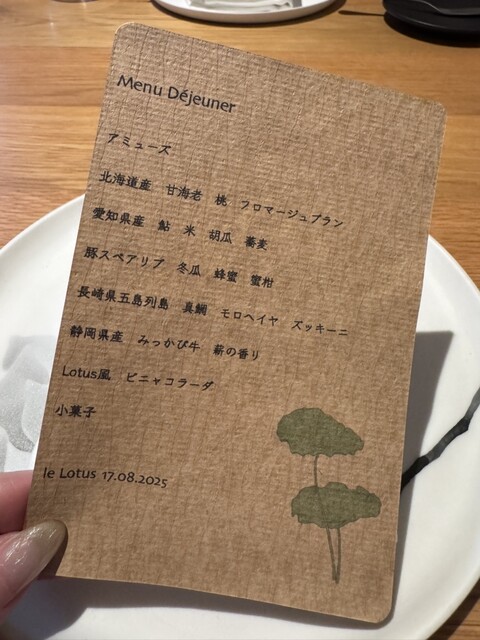 Menu Déjeuner
アミューズ
北海道産 甘海老 桃 フロマージュブラン
愛知県産 鮎 米 胡瓜 蕎麦
豚スペアリブ 冬瓜 蜂蜜 蜜柑
長崎県五島列島 真鯛 モロヘイヤ ズッキーニ
静岡県産 みっかび牛 薪の香り
Lotus風 ピニャコラーダ
小菓子
le Lotus 17.08.2025